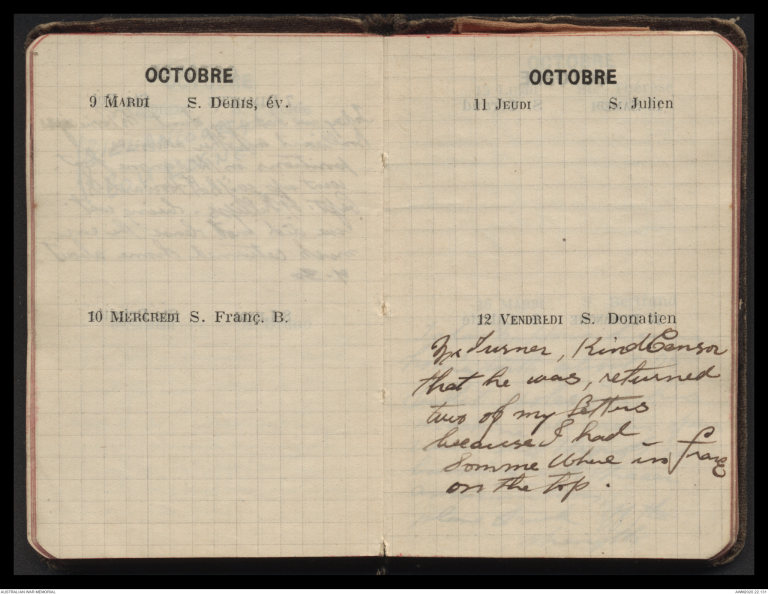 OCTOBRE
9 MARDI S. Denis, év.
10 MERCREDI S. Franç. B.
OCTOBRE
11 JEUDI S. Julien
12 VENDREDI S. Donatien
Mr Turner, Kind Censor
that he was, returned
two of my letters
because I had
Somme Where in France
on the top.
AUSTRALIAN WAR MEMORIAL